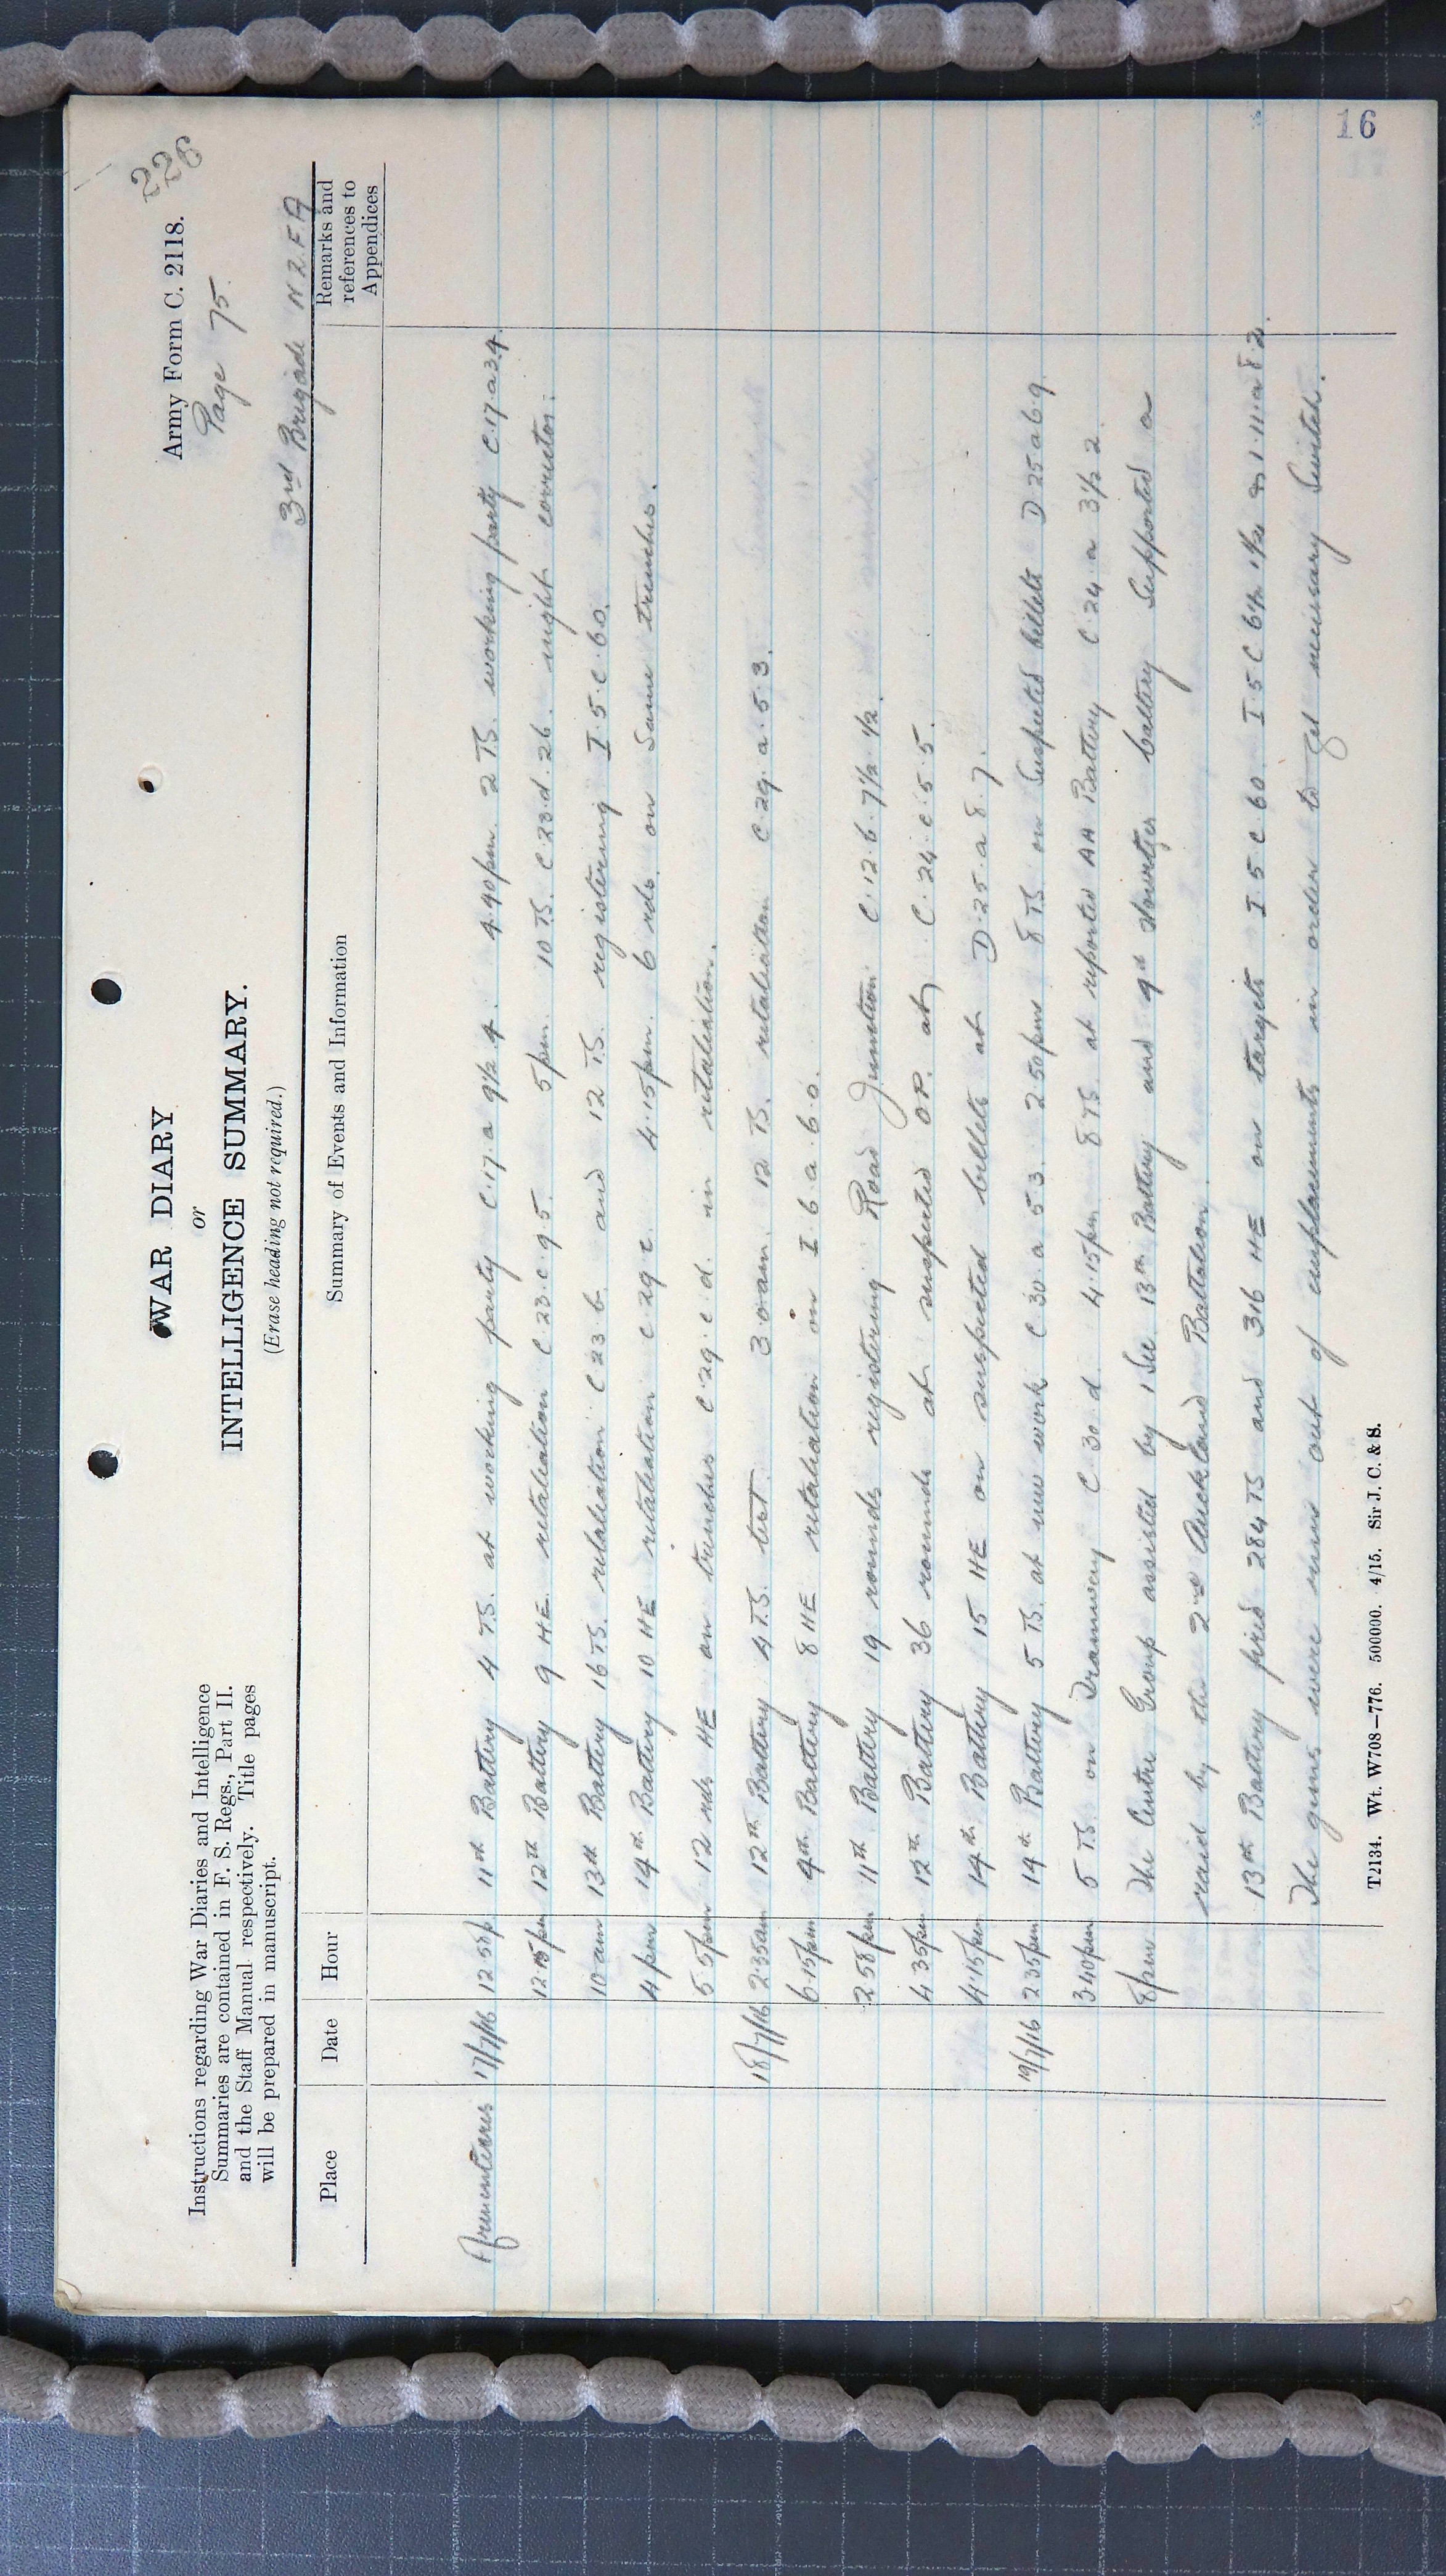 226
Army Form C. 2118.
Page 75.
WAR DIARY
or
INTELLIGENCE SUMMARY.
(Erase heading not required.)
3rd Brigade NZFA
Instructions regarding War Diaries and Intelligence
Summaries are contained in F. S. Regs., Part II.
and the Staff Manual respectively. Title pages
will be prepared in manuscript.
Place Date Hour Summary of Events and Information Remarks and references to Appendices
Armentieres 17/7/16 12.58p 11th Battery 4 TS. at working party C.17.a 9½.4. 4.40pm. 2 TS. working party C.17.a34.
12th Battery 9 HE. retaliation C 23.c.95. 5pm. 10 TS. C.23.d.26. night
10am 13th Battery 16 TS. retaliation C 23 b. and 12 TS. registering I.5.c.60.
4pm 14th Battery 10 HE retaliation C.29.c. 4.15pm. 6 rds. on Same trenches.
5.5pm 12 rds HE on trenches C.29.c.d. in retaliation.
18/7/16 2.35am 12th Battery 4 TS. test. 3.0am. 12 TS. retaliation C.29.a.5.3.
6.15pm 4th Battery 8 HE retaliation on I.6.a.6.0.
2.58pm 11th Battery 19 rounds registering Road Junction C.12.b.7½.½.
4.35pm 12th Battery 36 rounds at suspected O.P. at C.24.c.5.5.
4.15pm 14th Battery 15 HE on suspected billets at D.25.a 8.7.
19/7/16 2.35pm 14th Battery 5 TS. at new work C.30.a.53. 2.50pm 8 TS. on Suspected billets D.25.a6.9.
3.40pm 5 TS. on Tramway C 30 d. 4.15pm 8 TS. at reported AA Battery C.24.a 3½ 2
8pm The Centre Group assisted by 1 Sec. 13th Battery and 4th Howitzer battery Supported a
raid by the 2nd Auckland Battalion.
13th Battery fired 284 TS and 316 HE on targets I.5.c.60. I.5.C 6½.1½ I.11.a8.2.
The guns were run out of emplacements in order to get necessary Switch.
T2134. Wt. W708—776. 500000. 4/15. Sir J. C. & S.
16